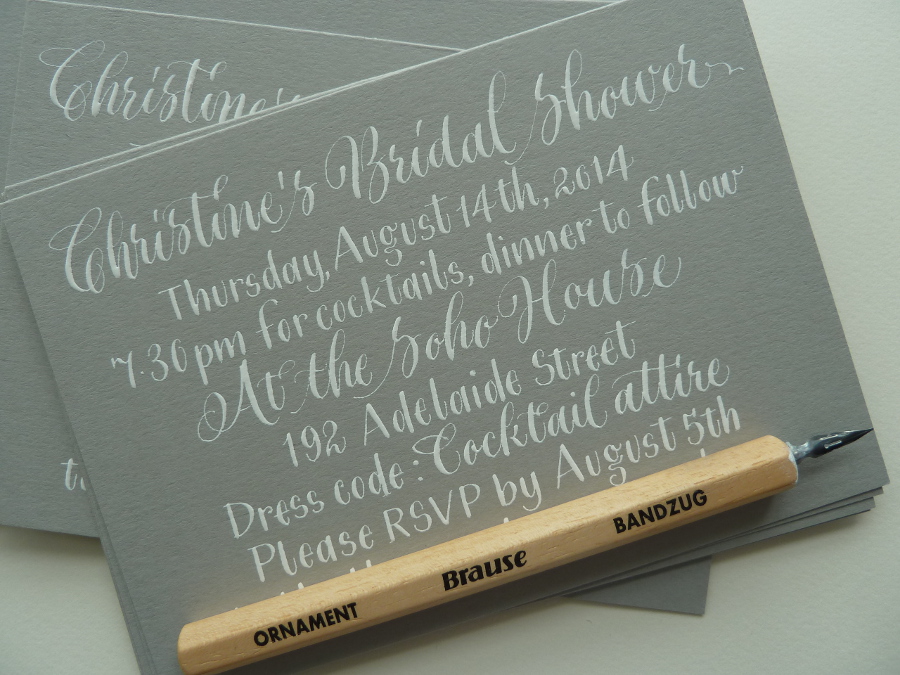 Christine's
Christine's Bridal Shower
Thursday, August 14th, 2014
7.30pm for cocktails, dinner to follow
At the Soho House
192 Adelaide Street
Dress code: Cocktail attire
Please RSVP by August 5th
ORNAMENT Brause BANDZUG